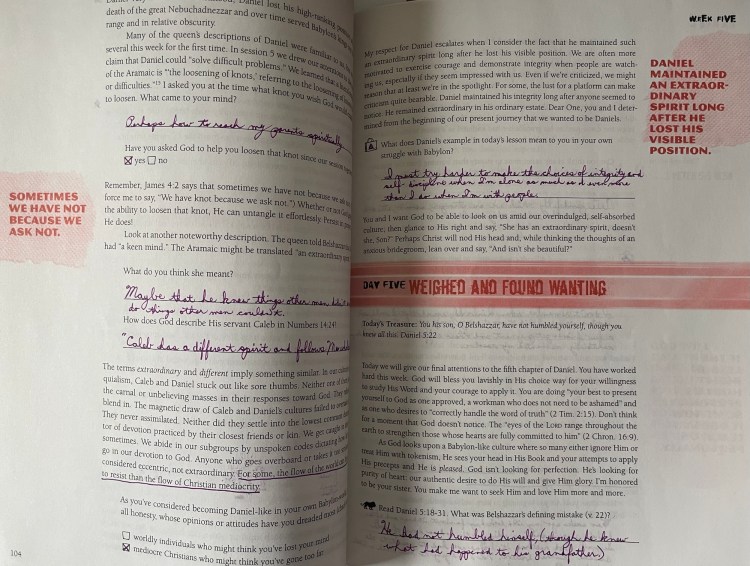 death of the great Nebuchadnezzar and over time served Babylon's
range and in relative obscurity.
Many of the queen's descriptions of Daniel were familiar to
several this week for the first time. In session 5 we drew our
claim that Daniel could "solve difficult problems." We learned that
of the Aramaic is "'the loosening of knots,' referring to the loosening of
or difficulties."13 I asked you at the time what knot you wish God
to loosen. What came to your mind?
Perhaps how to reach my parents spiritually
Have you asked God to help you loosen that knot since our
yes no
SOMETIMES
WE HAVE NOT
BECAUSE WE
ASK NOT.
Remember, James 4:2 says that sometimes we have not because we
force me to say, "We have knot because we ask not.") Whether or not
the ability to loosen that knot, He can untangle it effortlessly.
He does!
Look at another noteworthy description. The queen told Belshazzar
had "a keen mind." The Aramaic might be translated "an extraordinary
What do you think she meant?
Maybe that he knew things other men
do things other men couldn't.
How does God describe His servant Caleb in Numbers 14:24?
"Caleb has a different spirit and follows
The terms extraordinary and different imply something similar. In our
quialism, Caleb and Daniel stuck out like sore thumbs. Neither one of
the carnal or unbelieving masses in their responses toward God. They
blend in. The magnetic draw of Caleb and Daniel's cultures failed to
They never assimilated. Neither did they settle into the lowest common
tor of devotion practiced by their closest friends or kin. We get caught
sometimes. We abide in our subgroups by unspoken codes dictating how
go in our devotion to God. Anyone who goes overboard or takes it
considered eccentric, not extraordinary. For some, the flow of the world
to resist than the flow of Christian mediocrity.
As you've considered becoming Daniel-like in your own Babylon
all honesty, whose opinions or attitudes have you dreaded most
worldly individuals who might think you've lost your mind
mediocre Christians who might think you've gone too far
104
WEEK FIVE
My respect for Daniel escalates when I consider the fact that he maintained such
an extraordinary spirit long after he lost his visible position. We are often more
motivated to exercise courage and demonstrate integrity when people are watch-
ing us, especially if they seem impressed with us. Even if we're criticized, we might
reason that at least we're in the spotlight. For some, the lust for a platform can make
criticism quite bearable. Daniel maintained his integrity long after anyone seemed to
notice. He remained extraordinary in his ordinary estate. Dear One, you and I deter-
mined from the beginning of our present journey that we wanted to be Daniels.
DANIEL
MAINTAINED
AN EXTRAOR-
DINARY
SPIRIT LONG
AFTER HE
LOST HIS
VISIBLE
POSITION.
What does Daniel's example in today's lesson mean to you in your own
struggle with Babylon?
I must try harder to make the choices of integrity and
self-discipline when I'm alone as much as or even more
than I do when I'm with people.
You and I want God to be able to look on us amid our overindulged, self-absorbed
culture; then glance to His right and say, "She has an extraordinary spirit, doesn't
she, Son?" Perhaps Christ will nod His head and, while thinking the thoughts of an
anxious bridegroom, lean over and say, "And isn't she beautiful?"
DAY FIVE WEIGHED AND FOUND WANTING
Today's Treasure: You his son, O Belshazzar, have not humbled yourself, though you
knew all this. Daniel 5:22
Today we will give our final attentions to the fifth chapter of Daniel. You have worked
hard this week. God will bless you lavishly in His choice way for your willingness
to study His Word and your courage to apply it. You are doing "your best to present
yourself to God as one approved, a workman who does not need to be ashamed" and
as one who desires to "correctly handle the word of truth" (2 Tim. 2:15). Don't think
for a moment that God doesn't notice. The "eyes of the LORD range throughout the
earth to strengthen those whose hearts are fully committed to him" (2 Chron. 16:9).
As God looks upon a Babylon-like culture where so many either ignore Him or
tease Him with tokenism, He sees your head in His Book and your attempts to apply
His precepts and He is pleased. God isn't looking for perfection. He's looking for
purity of heart: our authentic desire to do His will and give Him glory. I'm honored
to be your sister. You make me want to seek Him and love Him more and more.
Read Daniel 5:18-31. What was Belshazzar's defining mistake (v. 22)?
He had not humbled himself, (though he knew
what had happened to his grandfather)